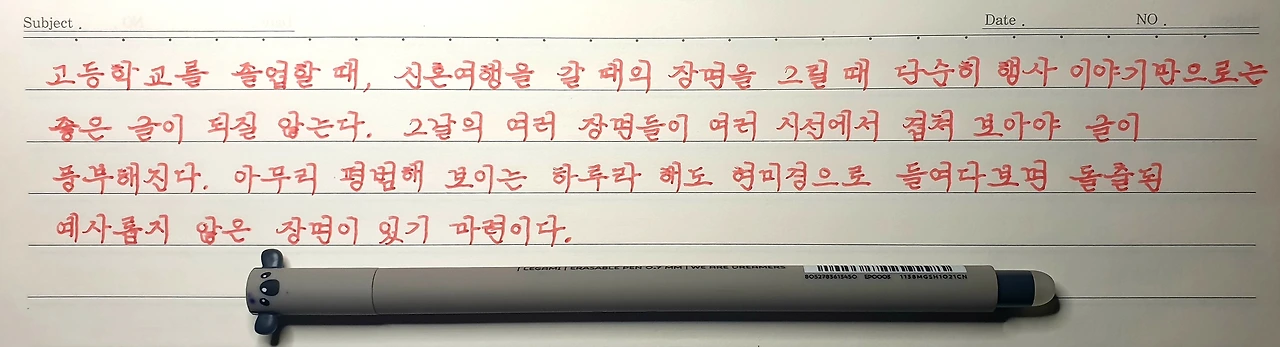 Subject .
Date .
NO .
고등학교를 졸업할 때, 신혼여행을 갈 때의 장면을 그릴 때 단순히 행사 이야기만으로는
좋은 글이 되질 않는다. 그날의 여러 장면들이 여러 시선에서 겹쳐 보아야 글이
풍부해진다. 아무리 평범해 보이는 하루라 해도 현미경으로 들여다보면 돌출된
예사롭지 않은 장면이 있기 마련이다.
| LEGAMI | ERASABLE PEN 0.7 MM | WE ARE DREAMERS
8052783613450 EP0003 1138MGSH1021CN